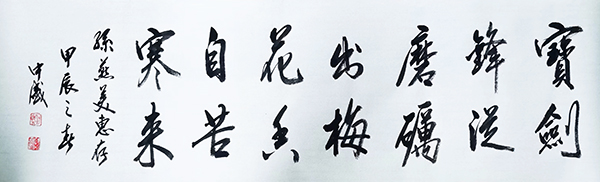 寶劍
鋒從
磨礪
出梅
花香
自苦
寒来
孫燕美惠存
甲辰之春